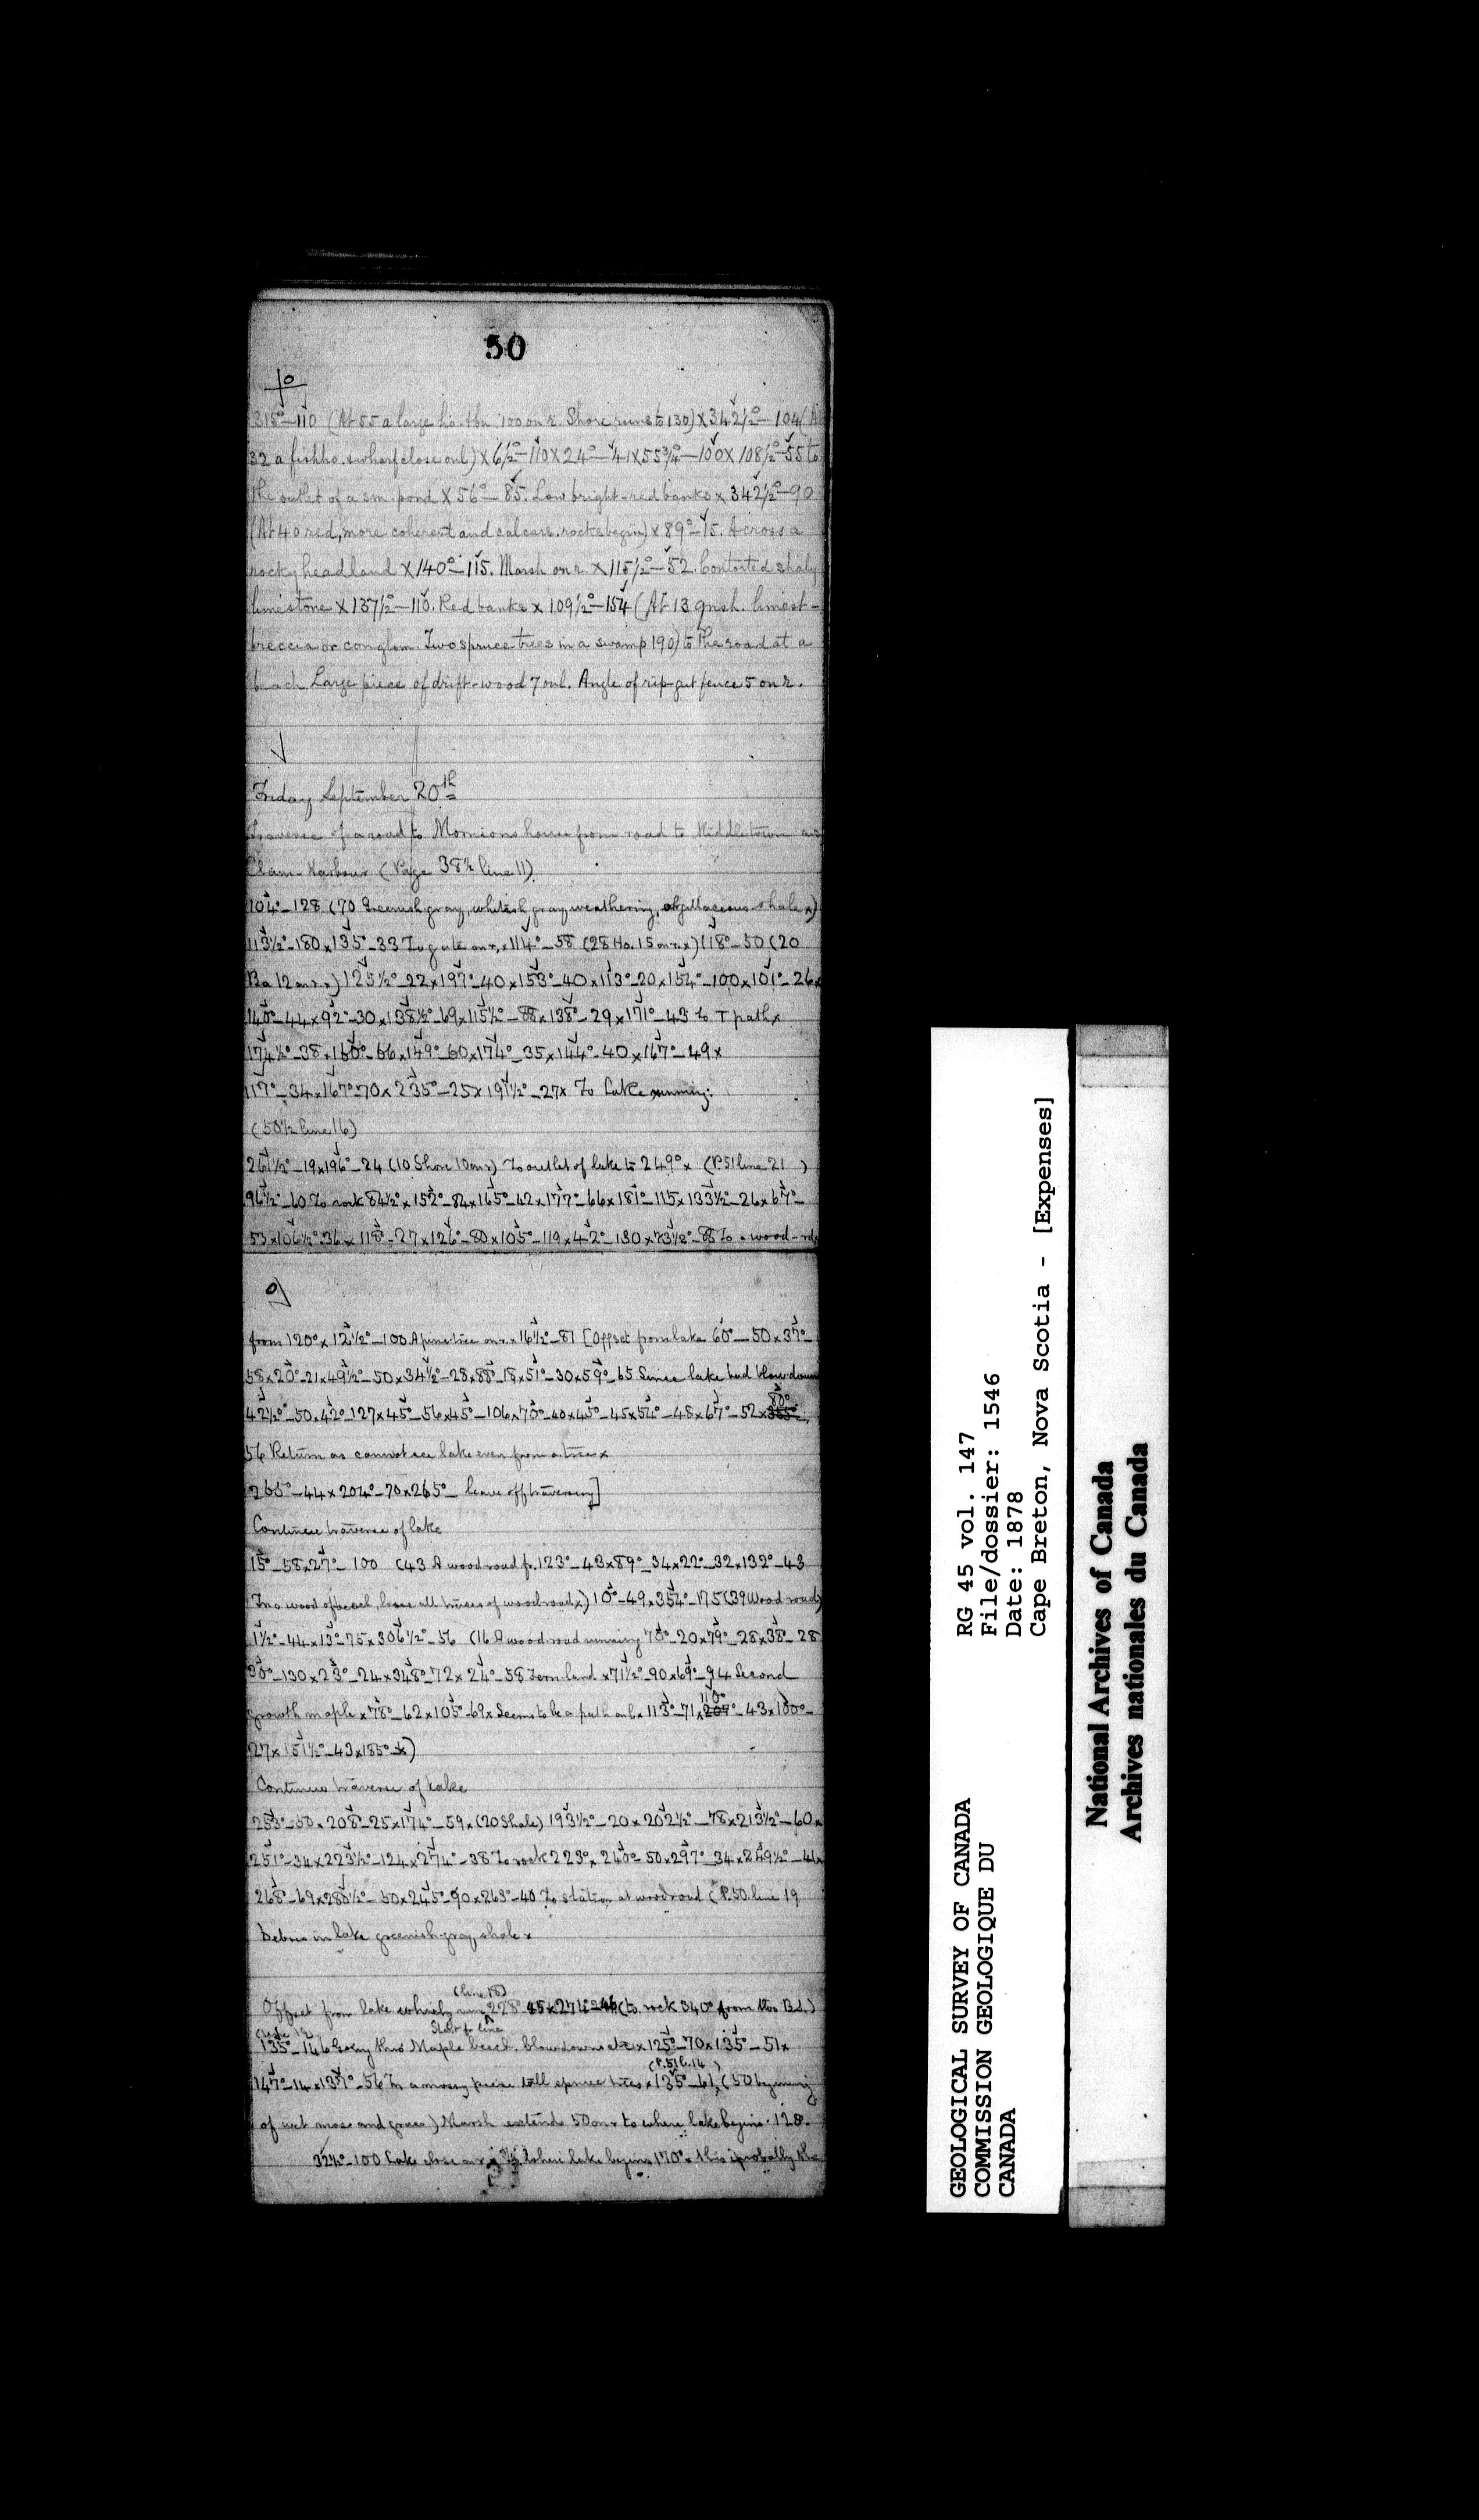 50
315°–110 (At 55 a large ho. & bn 100 on r. Shore runs to 130) x 342½°–104 (At
32 a fishho. & wharf close on l) x 6½°–110 x 24°–41 x 55¾°–100 x 108½°–55 to
the outlet of a sm. pond x 56°–85. Low bright-red banks x 342½°–90
(At 40 red, more coherent and calcare. rocks begin) x 89°–15. Across a
rocky headland x 140°–115. Marsh on r. x 115½°–52. Contorted shaly
limestone x 137½°–110. Red banks x 109½°–154 (At 13 gnsh. limest-
breccia or conglom. Two spruce trees in a swamp 190) to the road at a
beach Large piece of drift-wood 7 on l. Angle of rip-gut fence 5 on r.
Friday September 20th
Traverse of a road to Morrisons house from road to Middletown and
Clam Harbour (Page 38½ line 11)
104°–128 (70 Greenish gray, whitish gray weathering, argillaceous shale x)
113½°–180 x 135°–33 To gate on r. x 114°–58 (28 Ho. 15 on r. x) 118°–50 (20
Ba 12 on r. x) 125½°–22 x 197°–40 x 153°–40 x 113°–20 x 154°–100 x 101°–26 x
140°–44 x 92°–30 x 138½°–69 x 115½°–88 x 138°–29 x 171°–43 to T path x
174½°–38 x 160°–66 x 149°–60 x 174°–35 x 144°–40 x 167°–49 x
117°–34 x 167°–70 x 235°–25 x 191½°–27 x To Lake running:
(50½ line 16)
261½°–19 x 196°–24 (10 Shore 10 on r) To outlet of lake to 249° x (P. 51 line 21)
96½°–60 To rock 84½° x 152°–84 x 165°–42 x 177°–66 x 181°–115 x 133½°–26 x 67°–
53 x 106½°–36 x 118°–27 x 126°–80 x 105°–119 x 42°–130 x 73½°–88 To a wood-rd
from 120° x 12½°–100 A pine tree on r. x 16½°–81 [Offset from lake 60°–50 x 37°–
58 x 20°–21 x 49½°–50 x 34½°–28 x 88°–18 x 51°–30 x 59°–65 Since lake bad blow-down
42½°–50 x 42°–127 x 45°–56 x 45°–106 x 70°–40 x 45°–45 x 54°–48 x 67°–52 x 80°
56 Return as cannot see lake even from a tree x
266°–44 x 204°–70 x 265°– leave off traversing]
Continue traverse of lake
15°–58 x 27°–100 (43 A wood road fr. 123°–43 x 89°–34 x 22°–32 x 132°–43
In a wood of beech, loose all traces of wood road x) 10°–49 x 354°–175 (39 Wood road)
1½°–44 x 13°–75 x 306½°–56 (16 A wood road running 70°–20 x 79°–28 x 38°–28
30°–130 x 23°–24 x 348°–72 x 24°–58 Fern land x 71½°–90 x 69°–94 Second
growth maple x 78°–62 x 105°–69 x Seems to be a path on l. x 113°–71 x 110°–43 x 100°–
27 x 151½°–43 x 185° x)
Continue traverse of lake
253°–50 x 208°–25 x 174°–59 x (20 Shale) 193½°–20 x 202½°–78 x 213½°–60 x
251°–34 x 223½°–124 x 274°–38 To rock 223° x 240°–50 x 297°–34 x 249½°–41 x
268°–69 x 280½°–50 x 245°–90 x 263°–40 To station at wood road (P. 50 line 19
Debris in lake greenish gray shale x
(line 18)
Offset from lake 228° 45 x 274°–46 (to rock 340° from the Bd.)
Start to line
135°–146 Going thro Maple beech, blowdowns etc x 125°–70 x 135°–51 x
(P. 51 l. 14)
147°–14 x 137°–56 In a mossy tall spruce trees x 135°–61 (50 beginning
of wet moss and grass) Marsh extends 50 on r to where lake begins. 128.
324°–100 Lake close on r. where lake begins 170° x this probably the
GEOLOGICAL SURVEY OF CANADA
COMMISSION GEOLOGIQUE DU
CANADA
RG 45 vol. 147
File/dossier: 1546
Date: 1878
Cape Breton, Nova Scotia - [Expenses]
National Archives of Canada
Archives nationales du Canada